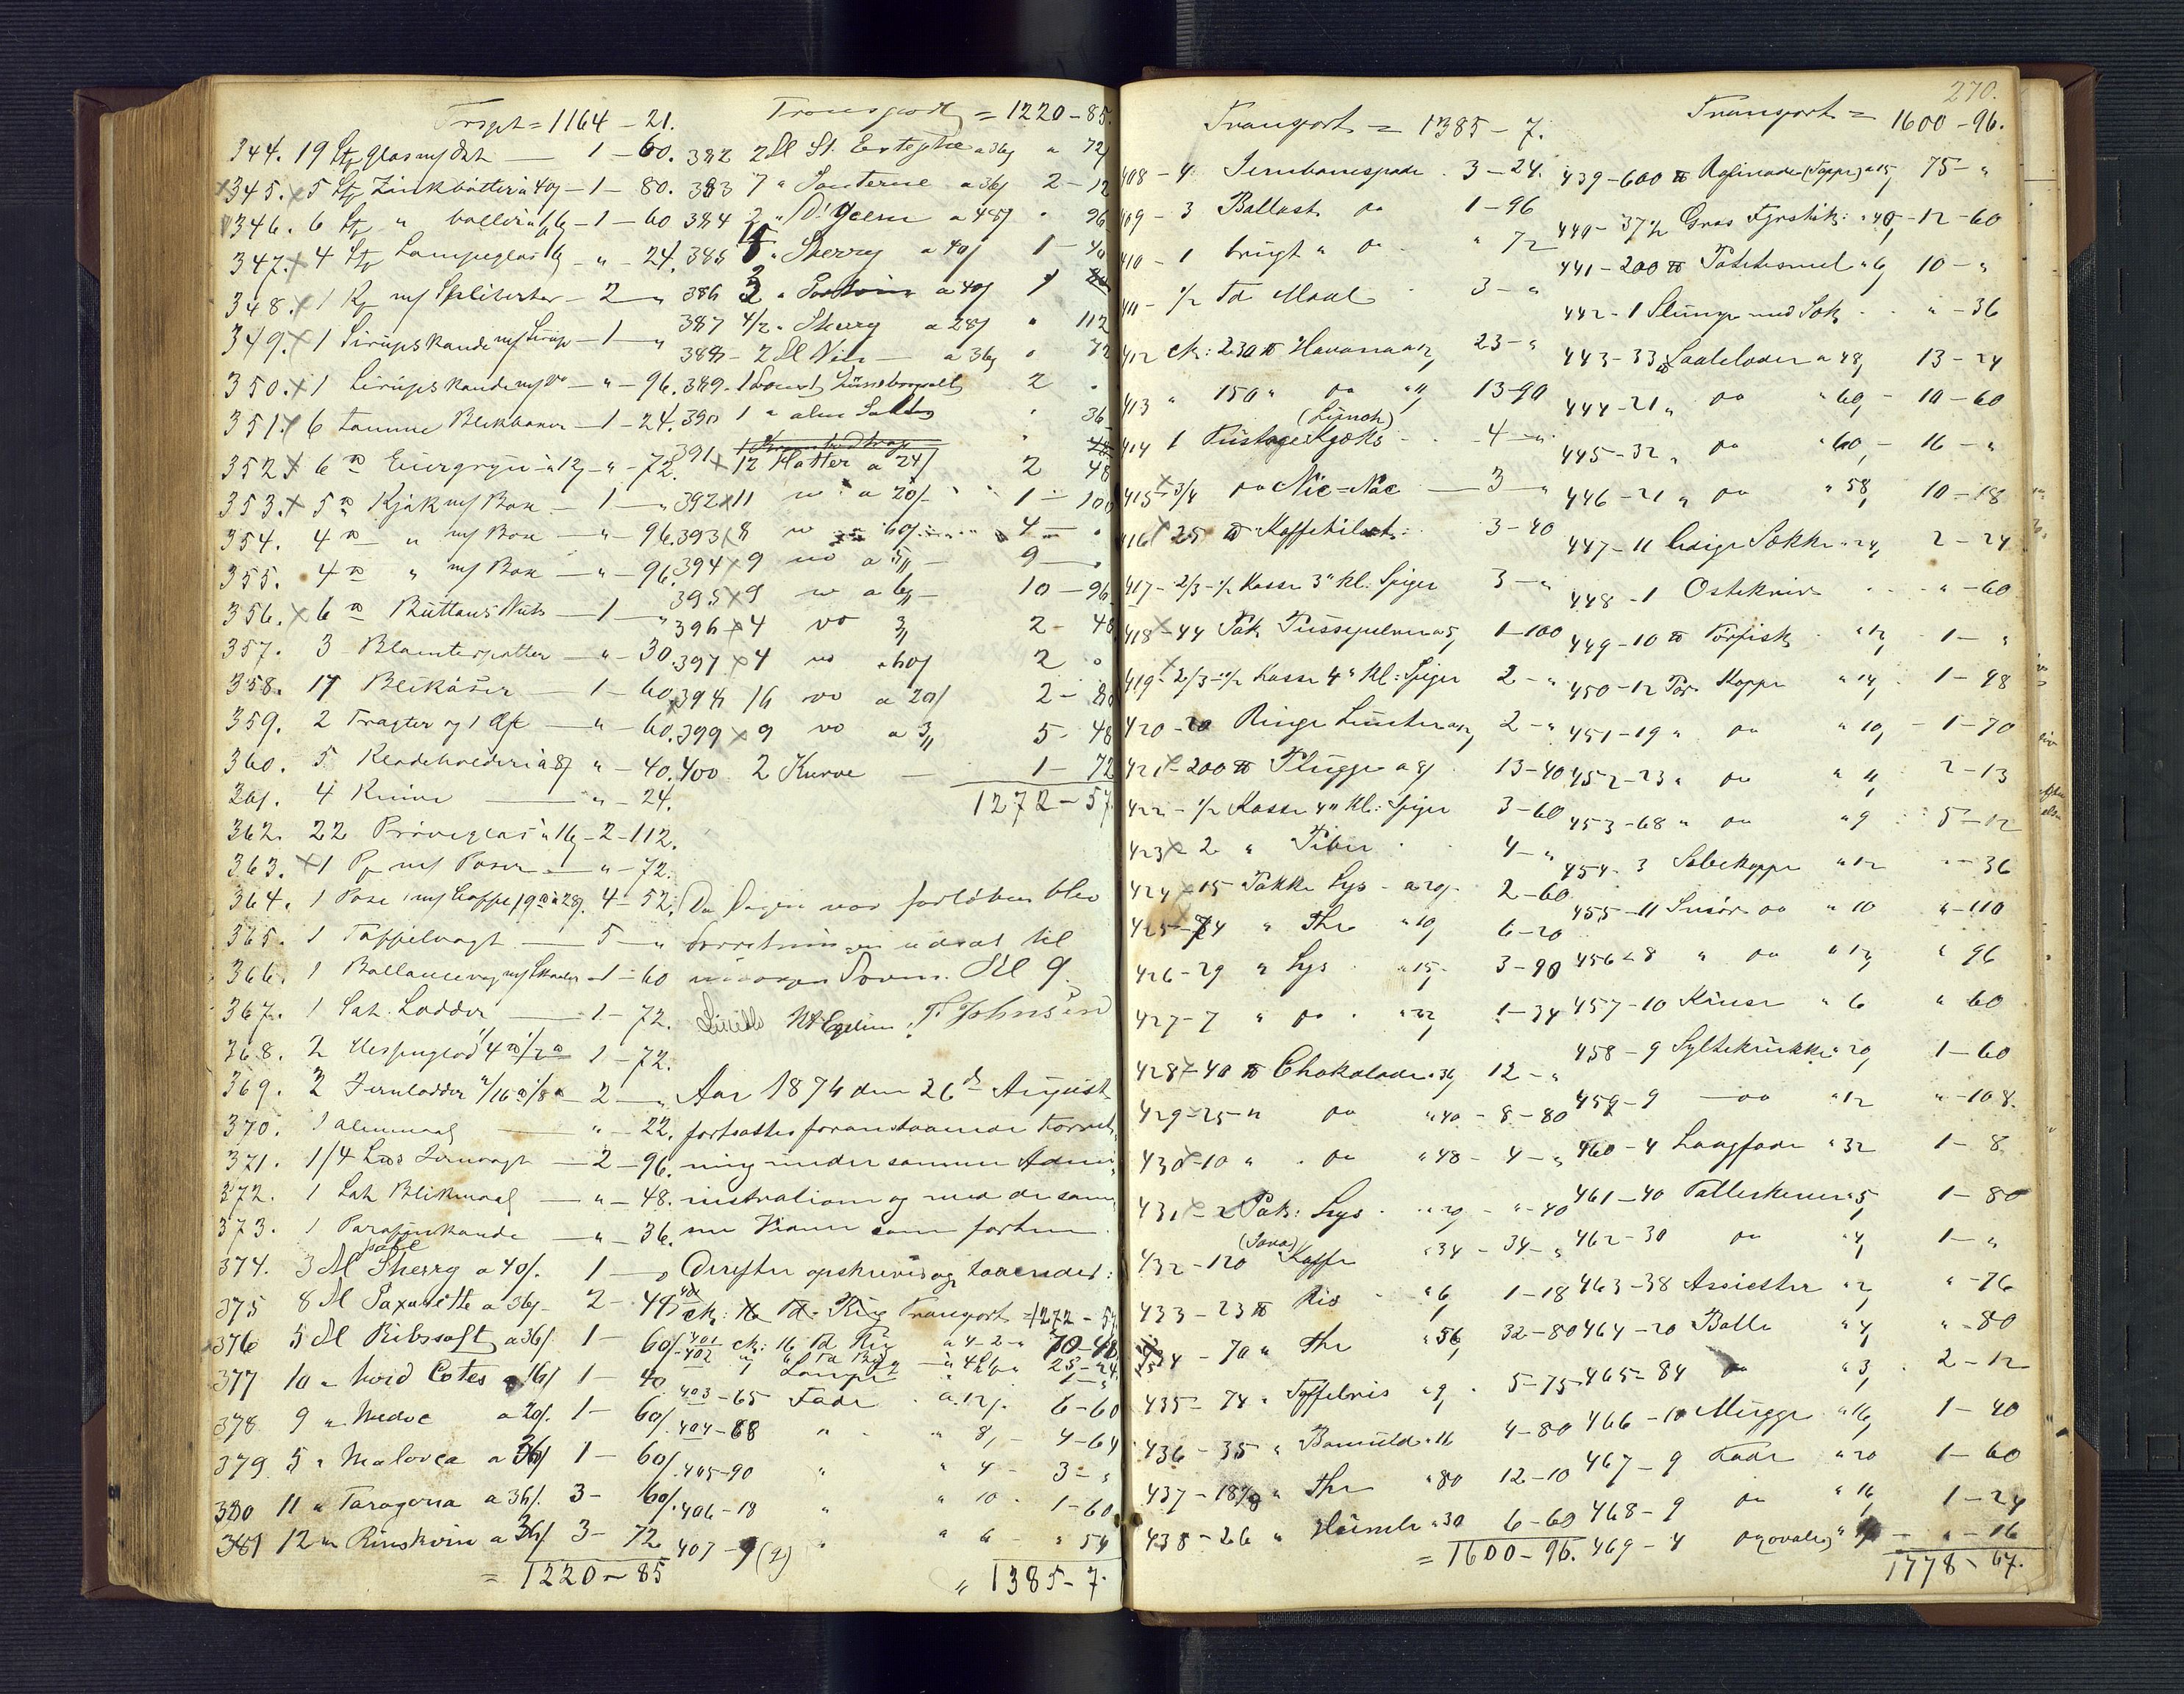 Trspt = 1164 – 21.
344. 19 Stk glas m/ — 1 – 60.
345. 5 Stk Zinkbøtter a 40 – 1 – 80.
346. 6 Stk " baller a 16 – 1 – 60
347. 4 Stk Lampeglas 16 – " – 24.
348. 1 Kg m/ Spliterter – 2 – "
349. 1 Sirupskande m/ Sirup – 1 – "
350. 1 Sirupskande – " – 96.
351. 6 tomme Blikbaxer – 1 – 24.
352 6 ℔ a 12 – " – 72.
353. 5 ℔ Kjæk m/ Box – 1 – "
354. 4 ℔ " m/ Box – " – 96.
355. 4 ℔ " m/ Box – " – 96.
356. 6 ℔ Nuts – 1 – "
357. 3 Blomsterpotter – " – 30.
358. 17 Blikdåser – 1 – 60
359. 2 Tragter og 1 – " – 60.
360. 5 a 8 " – 40.
361. 4 Knive — " – 24.
362. 22 Prøveglas a 16 – 2 – 112.
363. 1 Pg m/ Poser – " – 72.
364. 1 Pose m/ Kaffe 19 ℔ a 28. 4 – 52.
365. 1 Taffelvægt — 5 – "
366. 1 Ballancevægt m/ Skaaler – 1 – 60
367. 1 Sat. Lodder — 1 – 72.
368. 2 4 ℔ 1/2 ℔ 1 – 72.
369. 2 Jernlodder 1/16 ℔ 1/8 ℔ – 2 – "
370. 1 alenmaal — " – 22.
371. 1/4 — 2 – 96.
372. 1 Sat Blikmaal — " – 48.
373. 1 Parafinkande — " – 36.
374. 3 Fl Sherry a 40. 1 – "
375 8 Fl Paxarette a 36 – 2 – 48
376 5 Fl Ribssaft a 36 1 – 60
377 10 " hvid Cotes a 16 1 – 40
378 9 " Medoc a 20 1 – 60
379 5 " Malvoea a 36 1 – 60
380 11 " Taragona a 36 3 – 60
381 12 " Rinskvin a 36 3 – 72
= 1220 – 85
Transport = 1220 – 85.
382 2 Fl St. Estephe a 36 " 72
383 7 " Sauterne a 36 2 – 12
384 2 " D'Yqem a 48 " 96
385 4 " Sherry a 40 1 – 40
386 3 " Portvin a 40 1
387 4/2 " Sherry a 28 " 112
388 – 2 Fl Vin — a 36 " 72
389. 1 Lüneborgsalt 2 "
390 1 " alm Salt " 36
391 12 Hatter a 24 2 48
392 11 do a 20 1 – 100
393 8 do 60 4 – "
394 9 do a 5 – 9 – "
395 9 do a 6 – 10 – 96
396 4 do 3 2 – 48
397 4 do a 60 2 "
398 16 do a 20 2 – 80
399 9 do a 3 5 – 48
400 2 Kurve — 1 – 72
1272 – 57
Da Dagen var forløben blev
Forretningen udsat til
imorgen Form. Kl 9.
F Johnsen
Aar 1874 den 26de August
fortsattes foranstaaende Forret-
ning under samme Admi-
nistration og med de sam-
me Vidner som forhen.
Derefter opskreves og taxeredes:
Transport = 1272 – 57
401 ca: 16 Td Rug a 4-2 – " 70 – 48
402 " 7 " Td Byg — a 4 25 – 24
Lampe 1 – "
403 – 65 Fade a 12. 6 – 60
404 – 68 " " 8, – 4 – 64
405 – 90 " " 4 – 3 – "
406 – 18 " " 10 – 1 – 60
407 – 9 (9) " " 6 – " 54
" 1385 – 7.
270.
Transport = 1385 – 7.
408 – 4 Jernbanespade . 3 – 24.
409 – 3 Ballast do 1 – 96
410 – 1 brugt " do " 72
411 – 1/2 Td Maal 3 – "
412 ca: 230 ℔ Havanna a 12 23 – "
413 " 150 " do " 11 13 – 90
414 1 Fustage Kjæks (Lunch) 4 – "
415 – 3/4 do Nic-Nac — 3 – "
416 25 ℔ Kaffetilsæt: 3 – 40
417 – 2/3 – 1/2 Kasse 3" kl. Spiger 3 – "
418 – 44 Pak Pudsepulver a 5, 1 – 100
419 – 2/3 – 1/2 Kasse 4" kl: Spiger 2 – "
420 – 20 Ringe Lunter a 12 2 – "
421 – 200 ℔ Plugge a 8 13 – 40
422 – 1/2 Kasse 4" kl: Spiger 3 – 60
423 – 2 " Piber . 4 – "
424 – 15 Pakke Lys – a 20 – 2 – 60
425 – 74 " The " 10, 6 – 20
426 – 29 " Lys " 15, 3 – 90
427 – 7 " do . " 22 1 – 34
428 – 40 ℔ Chokolade " 36 12 – "
429 – 25 – " do " 40 – 8 – 80
430 – 10 " do " 48 – 4 – "
431 – 2 Pak: Lys . " 20 – " – 40
432 – 120 (Java) Kaffe " 34 – 34 – "
433 – 23 ℔ Ris " 6, 1 – 18
434 – 70 " The " 56, 32 – 80
435 – 74 " Toffelris " 9, . 5 – 75
436 – 35 " Bomuld " 16 4 – 80
437 – 18 1/8 " The " 80 12 – 10
438 – 26 " Humle " 30 6 – 60
= 1600 – 96.
Transport = 1600 – 96.
439 – 600 ℔ Rafinade (Toppe) a 15, 75 – "
440 – 37 1/2 Gros Fyrstik: " 40, – 12 – 60
441 – 200 ℔ Potetesmel " 6, 10 – "
442 – 1 Slump med Sæk . . " – 36
443 – 33 ℔ Saalelæder a 48, 13 – 24
444 – 21 " do " 60, – 10 – 60
445 – 32 " do " 60, – 16 – "
446 – 21 " do " 58, 10 – 18
447 – 11 ledige Sække " 24, 2 – 24
448 – 1 Ostekniv . . . " – 60
449 – 10 ℔ Tørfisk . " 12, 1 – "
450 – 12 Par Koppe " 14, 1 – 48
451 – 19 " do " 10, – 1 – 70
452 – 23 " do " 11, 2 – 13
453 – 68 " do " 9 5 – 12
454 – 3 Sæbekoppe " 12 " – 36
455 – 11 Smør do " 10 " – 110
456 – 8 " do " 12, " 96
457 – 10 Kruse " 6 " 60
458 – 9 Syltekrukke " 20, 1 – 60
459 – 9 — do " 12 " – 108.
460 – 4 Langfade " 32 1 – 8
461 – 40 Tallerkener " 5, 1 – 80
462 – 30 do " 4, 1 – "
463 – 38 Assietter " 2, " – 76
464 – 20 Bolle " 4, " – 80
465 – 84 do " 3, . 2 – 12
466 – 10 Mugge " 16, 1 – 40
467 – 9 Fade " 20 1 – 60
468 – 9 do " 16, 1 – 24
469 – 4 do (ovale) " 4 — " – 16
1778 – 67.